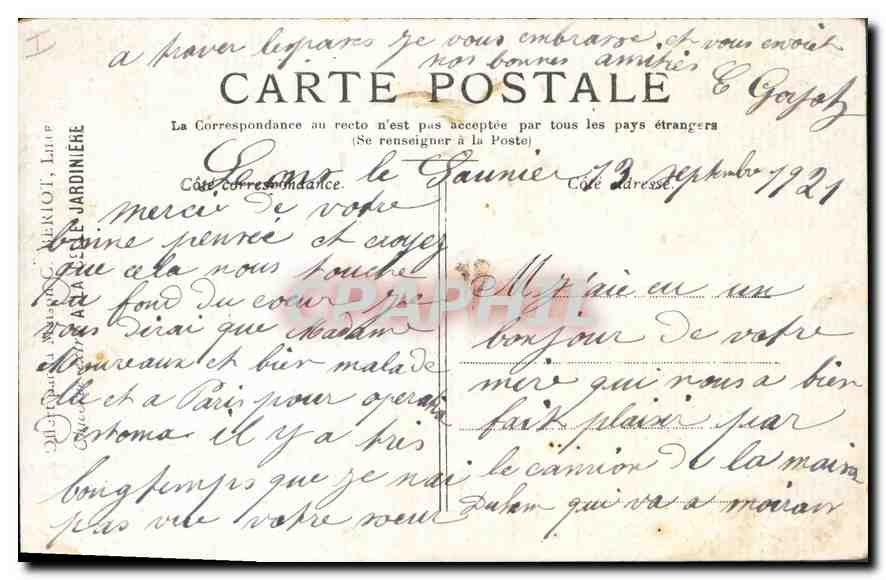 a traver lespaxes Je vous embrasse et vous envoit
nos bonnes amitiés
CARTE POSTALE
La Correspondance au recto n'est pas acceptée par tous les pays étrangers
(Se renseigner à la Poste)
Lons le Saunier 13 septembre 1921
Côté correspondance. Côté adresse.
merci de votre
bonne pensée et croyez
que cela nous touche
du fond du coeur Je
vous dirai que Madame
Moureaux et bien malade
elle et a Paris pour
il y a très
longtemps que je nai
pas vue votre soeur
M j'aie eu un
bonjour de votre
mère qui nous a bien
fait plaisir par
le camion de la maison
qui va a moirans
MERIOT, LILLE
A LA BELLE JARDINIÈRE
CPAPHIL